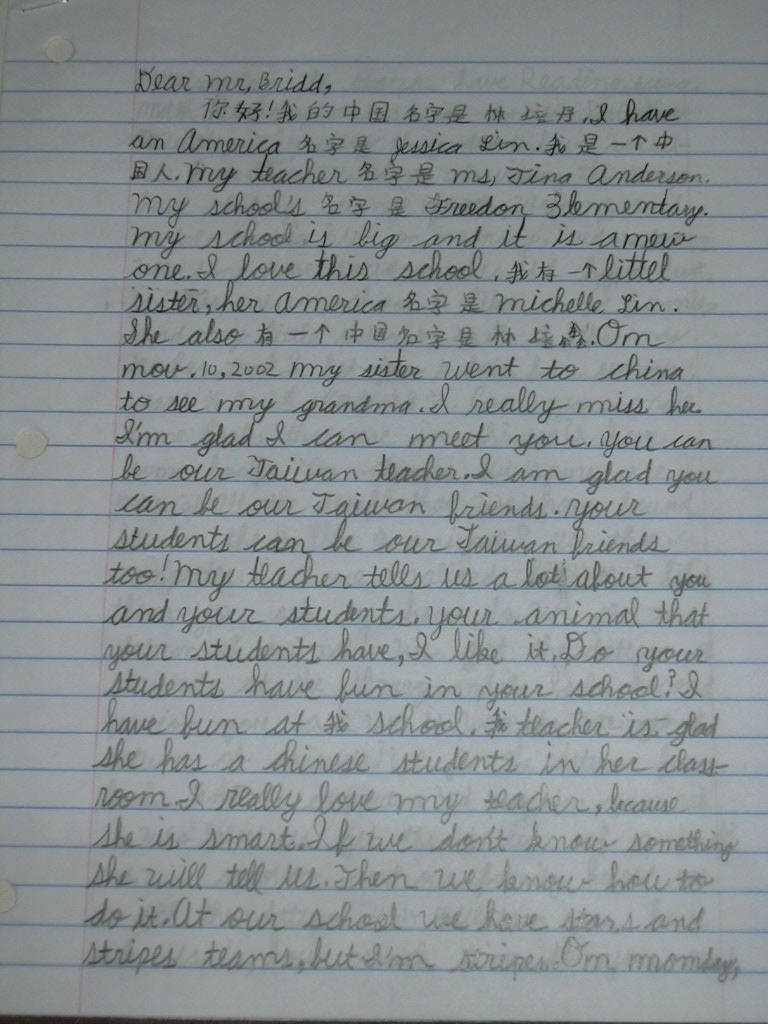 Dear Mr. Bridd,
你好!我的中国名字是林培丹. I have
an America 名字是 Jessica Lin. 我是一个中
国人. My teacher 名字是 Ms, Tina Anderson.
My school's 名字是 Freedon Elementary.
My school is big and it is a new
one. I love this school. 我有一个littel
sister, her America 名字是 Michelle Lin.
She also 有一个中国名字是林培鑫. On
Nov. 10, 2002 my sister went to china
to see my grandma. I really miss her.
I'm glad I can meet you. You can
be our Taiwan teacher. I am glad you
can be our Taiwan friends. Your
students can be our Taiwan friends
too! My teacher tells us a lot about you
and your students. Your animal that
your students have, I like it. Do your
students have fun in your school? I
have fun at 我 school. 我 teacher is glad
she has a chinese students in her class-
room. I really love my teacher, because
she is smart. If we don't know something
she will tell us. Then we know how to
do it. At our school we have stars and
stripes teams, but I'm stripes. On monday,